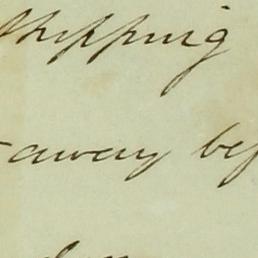 shipping
away bef